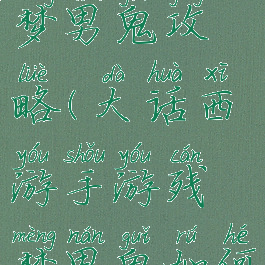 梦男鬼攻
lüè dà huà xī
略(大话西
yóu shǒu yóu cán
游手游残
mèng nán guǐ rú hé
梦男鬼如何